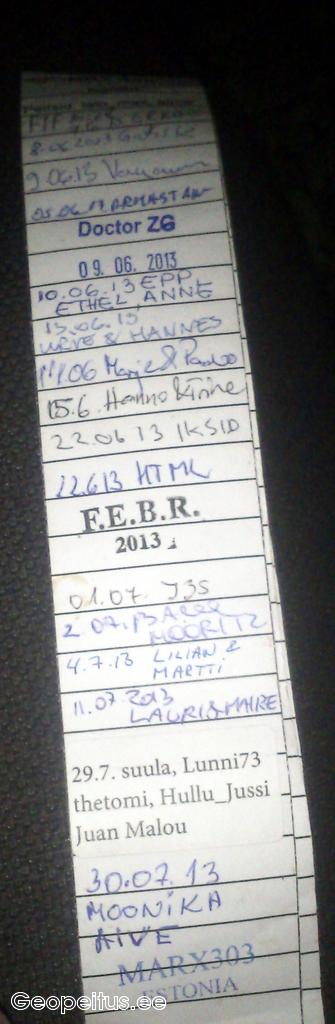 9.06.13
Doctor ZG
09. 06. 2013
10.06.13 EPP
ETHEL, ANNE
13.06.13
URVE & HANNES
14.06
15.6. Hanno & Trine
22.06 13 IKSID
22.6.13 HTML
F.E.B.R.
2013
01.07. J3S
2.07.13
MOORITZ
4.7.13 LILIAN &
MARTTI
11.07.2013
LAURI & MAIRE
29.7. suula, Lunni73
thetomi, Hullu_Jussi
Juan Malou
30.07.13
MOONIKA
AIVE
MARX303
ESTONIA
Geopeitus.ee